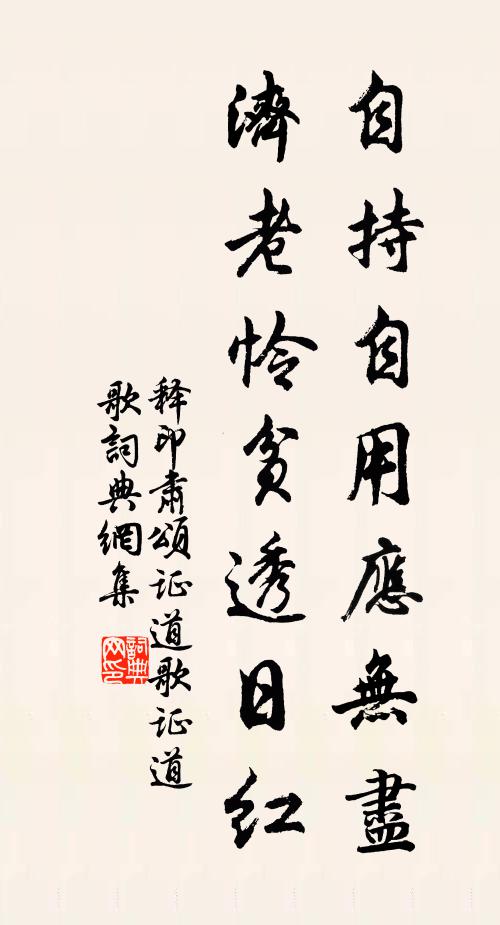 自持自用應無盡
濟老怜貧透日紅
释印肅頌证道歌证道
歌詞典網集
詞典網印